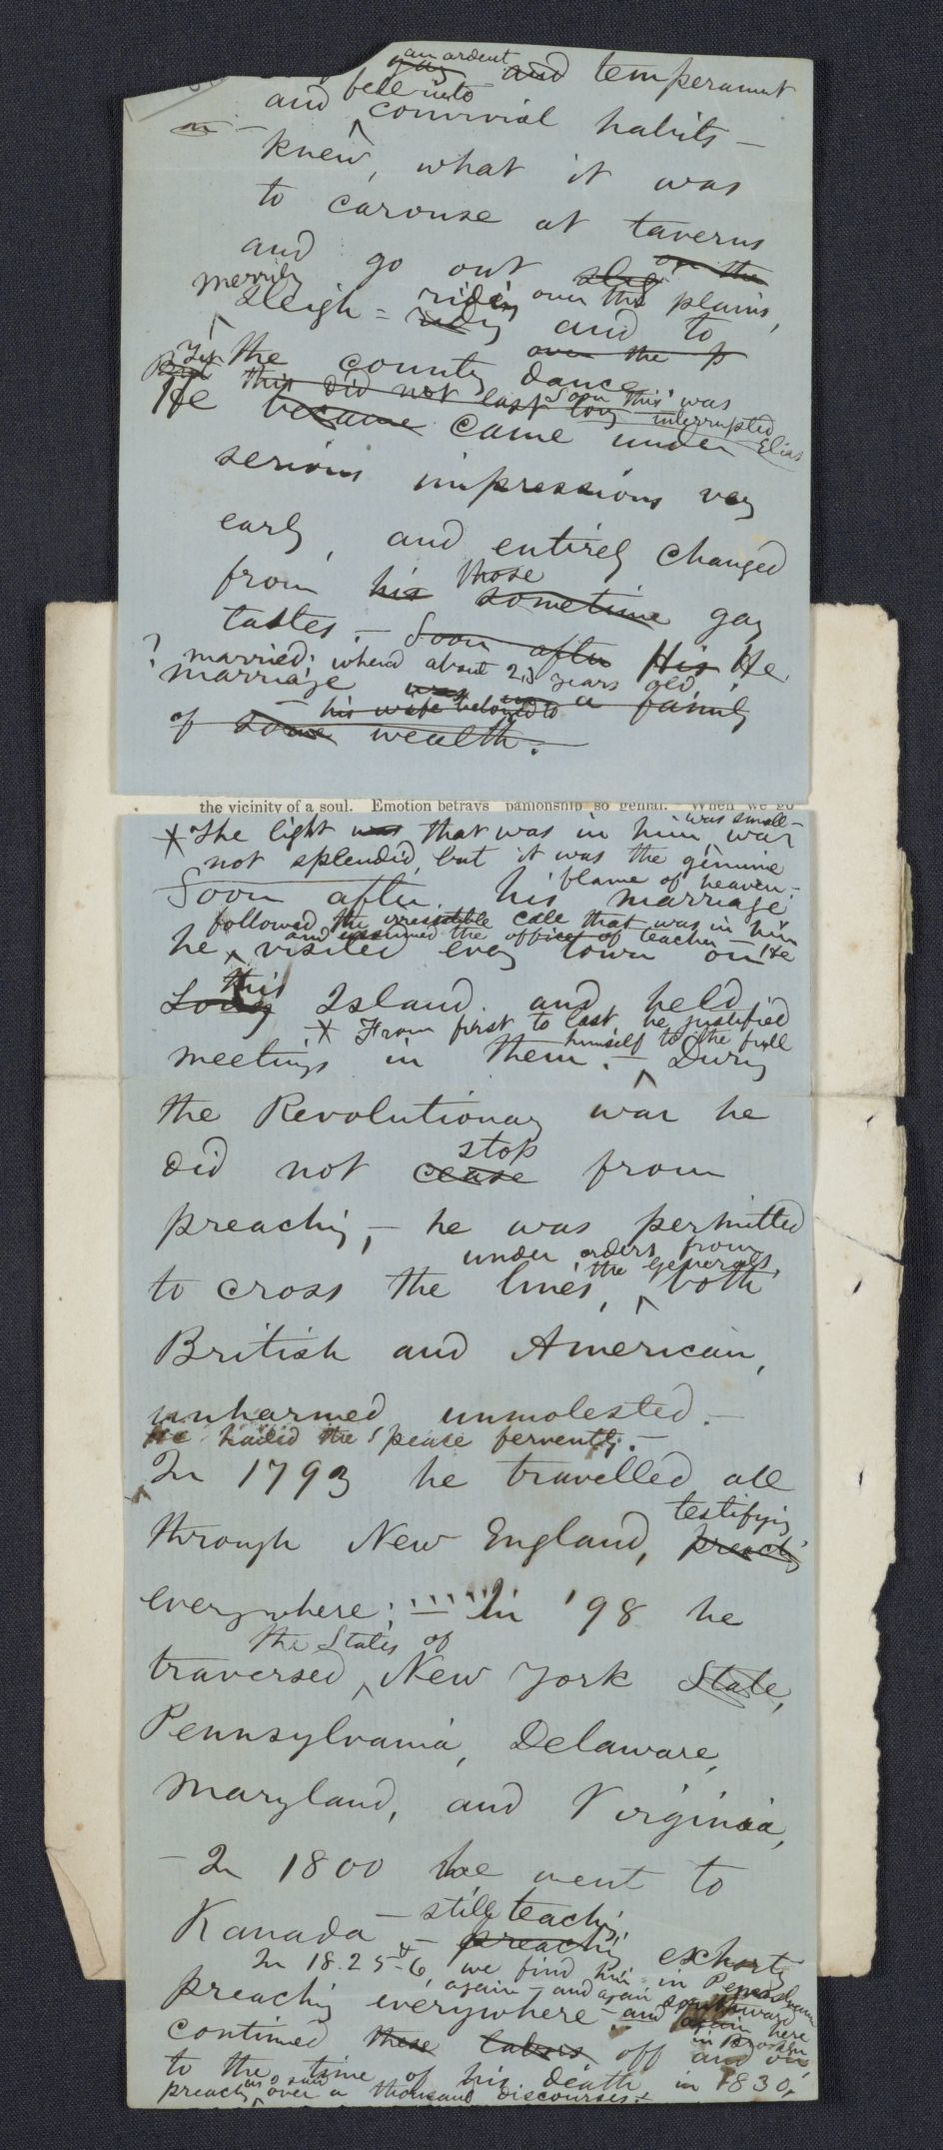 an ardent
gay and temperament
fell into
and convivial habits —
knew, what it was
to carouse at taverns
and go out sleg on the
merrily
sleigh = riding over the plains,
ridy and to
over the p
the county dance
Yet
But this did not last long Soon this was
interrupted
He became came under Elias
serious impressions very
early, and entirely changed
those
from his sometime gay
tastes. — Soon after His He
? married; when about 23 years old,
marriage was in a family
his wife belonged to
of some wealth. —
the vicinity of a soul. Emotion betrays pamonship so genial. When we go
was small —
* The light was that was in him, war
not splendid, but it was the genuine
flame of heaven —
Soon after his marriage
followed the irresistible call that was in him
and assumed the office of teacher — He
he visited every town on
this
Long Island and held
* From first to last, he justified
himself to the full
meetings in them. — During
the Revolutionary war he
stop
did not cease from
preaching, — he was permitted
under orders from
the generals,
to cross the lines, both
British and American,
unharmed unmolested. —
He hailed the peace fervently. —
In 1793 he travelled all
testifying
through New England, preachg
everywhere; — In '98 he
the States of
traversed New York State,
Pennsylvania, Delaware,
Maryland, and Virginia,
— In 1800 he went to
— still teachig
Kanada — preachig exhortg
In 1825-6, we find him in Pennsylvania
again — and again southward
preachig everywhere — and again here
in Brooklyn
continued these labors, off and on
to the time of his death in 1830,
preachg over a thousand discourses. —